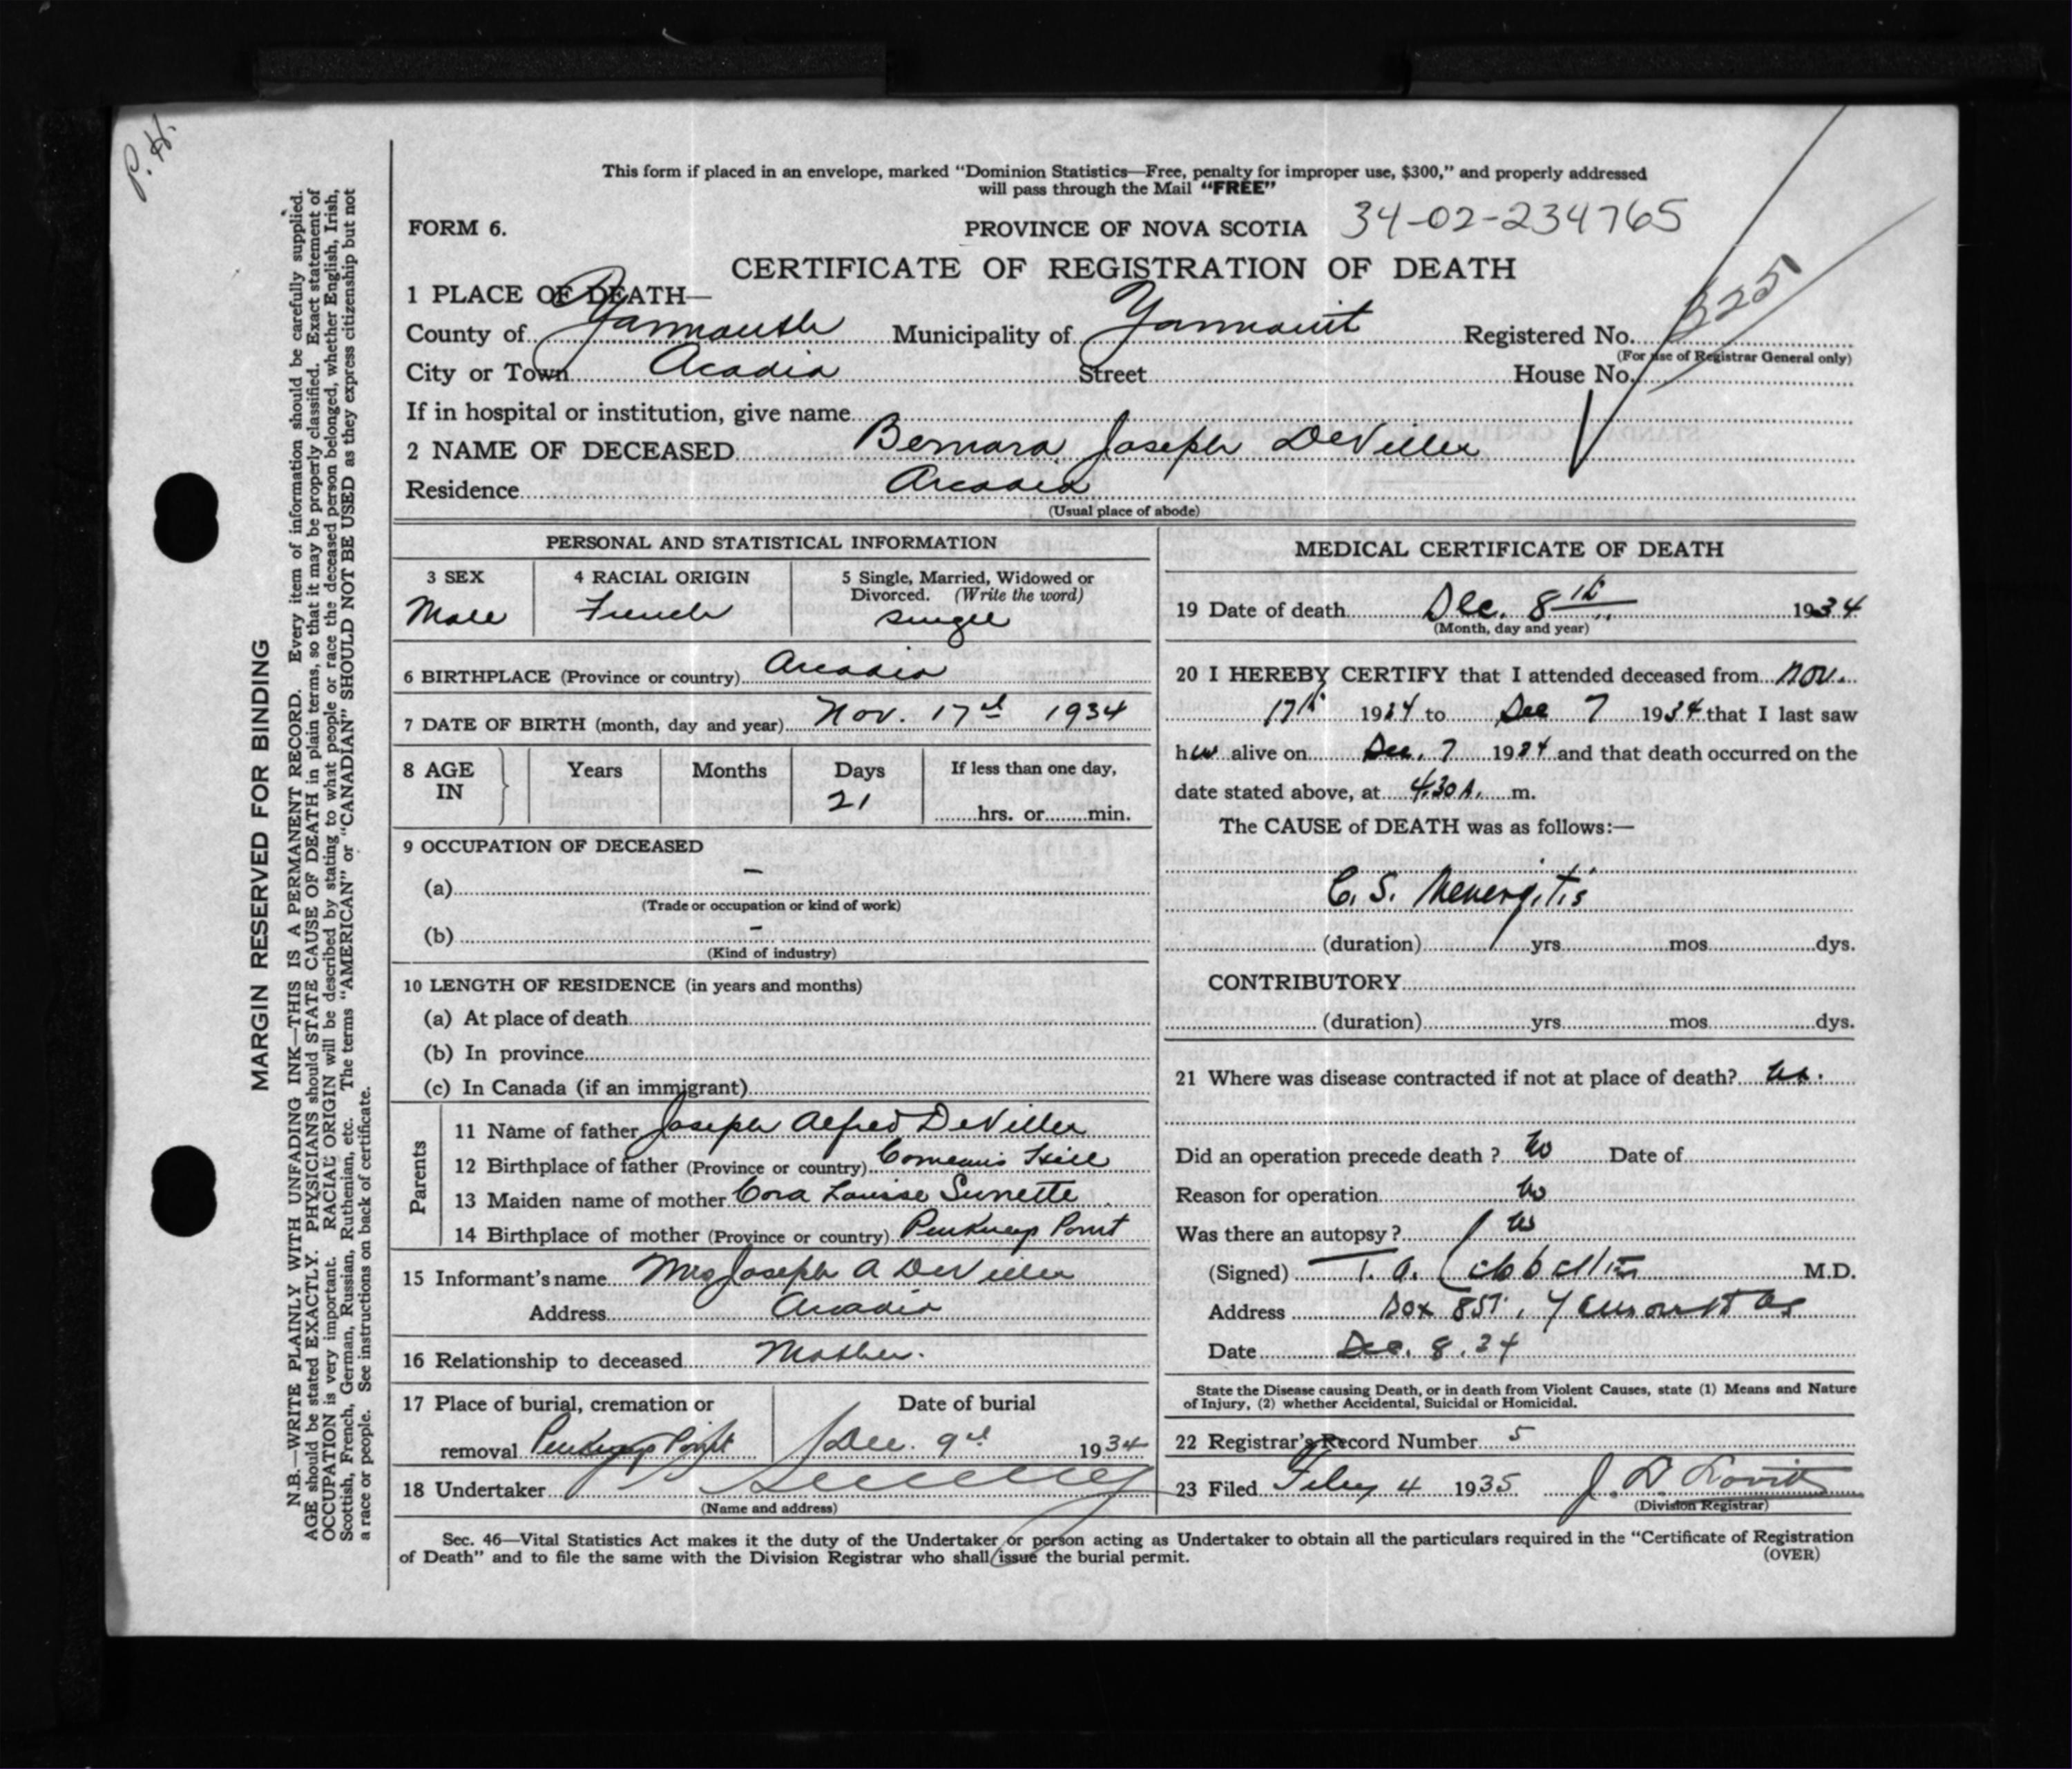 P. H.
This form if placed in an envelope, marked "Dominion Statistics—Free, penalty for improper use, $300," and properly addressed
will pass through the Mail "FREE"
FORM 6.
PROVINCE OF NOVA SCOTIA 34-02-234765
CERTIFICATE OF REGISTRATION OF DEATH
1 PLACE OF DEATH—
County of Yarmouth Municipality of Yarmouth Registered No. 325
(For use of Registrar General only)
City or Town Acadia Street House No.
If in hospital or institution, give name
2 NAME OF DECEASED Bernard Joseph DeViller
Residence Arcadia
(Usual place of abode)
PERSONAL AND STATISTICAL INFORMATION
3 SEX
Male
4 RACIAL ORIGIN
French
5 Single, Married, Widowed or
Divorced. (Write the word)
Single
6 BIRTHPLACE (Province or country) Arcadia
7 DATE OF BIRTH (month, day and year) Nov. 17 1934
8 AGE IN
Years Months Days If less than one day,
21 hrs. or min.
9 OCCUPATION OF DECEASED
(a) –
(Trade or occupation or kind of work)
(b) –
(Kind of industry)
10 LENGTH OF RESIDENCE (in years and months)
(a) At place of death
(b) In province
(c) In Canada (if an immigrant)
Parents
11 Name of father Joseph Alfred DeViller
12 Birthplace of father (Province or country) Comeau's Hill
13 Maiden name of mother Cora Louise Surrette
14 Birthplace of mother (Province or country) Pinkneys Point
15 Informant's name Mrs Joseph A DeViller
Address Arcadia
16 Relationship to deceased Mother.
17 Place of burial, cremation or
removal Pinkneys Point
Date of burial
Dec. 9 1934
18 Undertaker
(Name and address)
MEDICAL CERTIFICATE OF DEATH
19 Date of death Dec. 8th 1934
(Month, day and year)
20 I HEREBY CERTIFY that I attended deceased from Nov.
17th 1934 to Dec 7 1934 that I last saw
h alive on Dec. 7 1934 and that death occurred on the
date stated above, at 4.30 A. m.
The CAUSE of DEATH was as follows:—
C. S. Menengitis
(duration) yrs mos dys.
CONTRIBUTORY
(duration) yrs mos dys.
21 Where was disease contracted if not at place of death?
Did an operation precede death? No Date of
Reason for operation No
Was there an autopsy? No
(Signed) T. A. M.D.
Address Box 857, Yarmouth
Date Dec. 8. 34
State the Disease causing Death, or in death from Violent Causes, state (1) Means and Nature
of Injury, (2) whether Accidental, Suicidal or Homicidal.
22 Registrar's Record Number 5
23 Filed Feby 4 1935 J. D. Lovitt
(Division Registrar)
Sec. 46—Vital Statistics Act makes it the duty of the Undertaker or person acting as Undertaker to obtain all the particulars required in the "Certificate of Registration
of Death" and to file the same with the Division Registrar who shall issue the burial permit.
(OVER)
MARGIN RESERVED FOR BINDING
N.B.—WRITE PLAINLY WITH UNFADING INK—THIS IS A PERMANENT RECORD. Every item of information should be carefully supplied.
AGE should be stated EXACTLY. PHYSICIANS should STATE CAUSE OF DEATH in plain terms, so that it may be properly classified. Exact statement of
OCCUPATION is very important. RACIAL ORIGIN will be described by stating to what people or race the deceased person belonged, whether English, Irish,
Scottish, French, German, Russian, Ruthenian, etc. The terms "AMERICAN" or "CANADIAN" SHOULD NOT BE USED as they express citizenship but not
a race or people. See instructions on back of certificate.